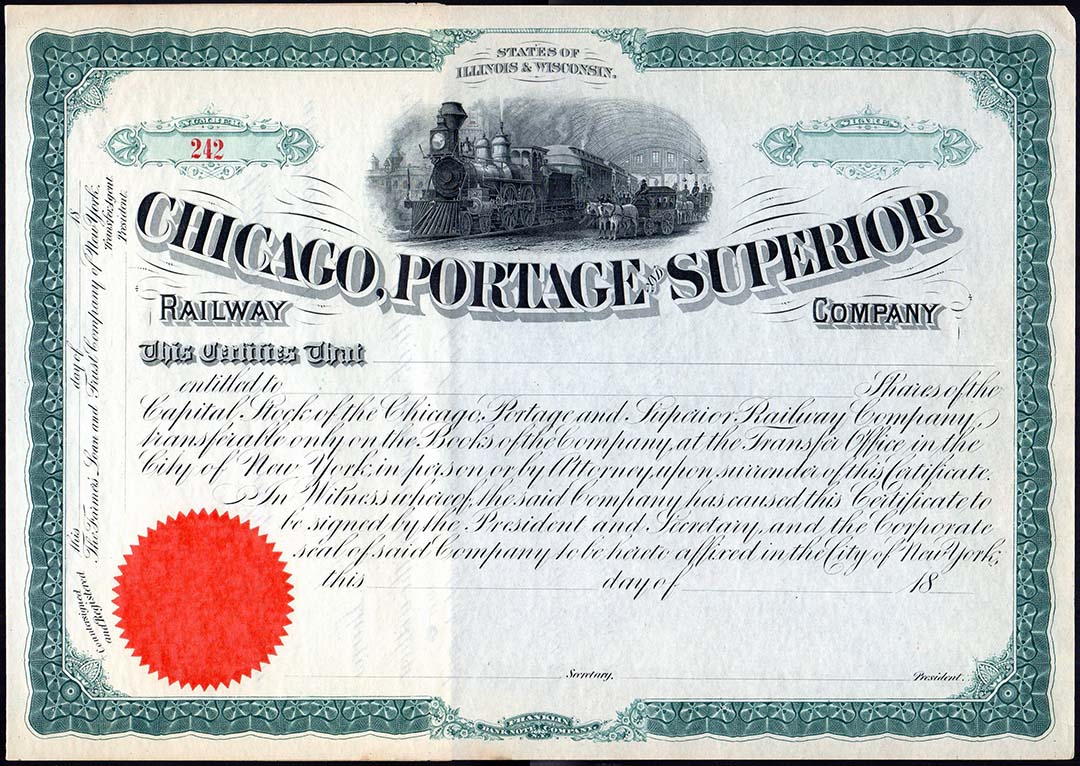 STATES OF
ILLINOIS & WISCONSIN.
NUMBER
242
SHARES
CHICAGO, PORTAGE AND SUPERIOR
RAILWAY COMPANY
This Certifies That
entitled to Shares of the
Capital Stock of the Chicago, Portage and Superior Railway Company,
transferable only on the Books of the Company, at the Transfer Office in the
City of New York, in person or by Attorney, upon surrender of this Certificate.
In Witness whereof, the said Company has caused this Certificate to
be signed by the President and Secretary, and the Corporate
seal of said Company to be hereto affixed in the City of New York,
this day of 18
Secretary. President.
Countersigned
and Registered
this day of 18
The Farmers' Loan and Trust Company of New York,
Transfer Agent.
President.
FRANKLIN
BANK NOTE COMPANY
N.Y.